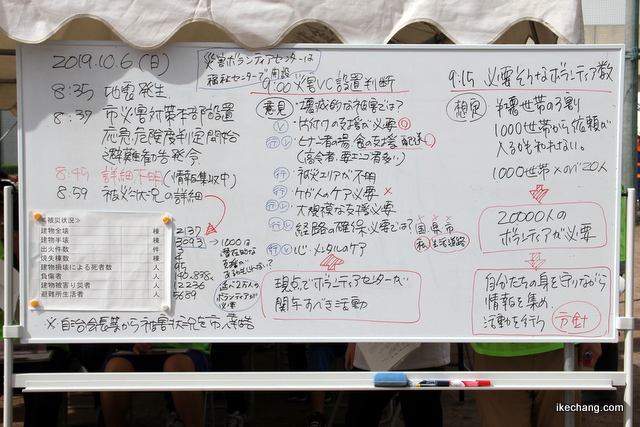 2019.10.6 (日)
災害ボランティアセンターは
福祉センターで開設
8:35 地震発生
8:37 市災害対策本部設置
応急危険度判定開始
避難勧告発令
8:45 詳細不明 (情報収集中)
8:59 被災状況の詳細
≪被災状況≫
建物全壊 棟 2137
建物半壊 棟 3093
出火件数 件
流失棟数 棟
建物損壊による死者数 人
負傷者 人
建物被害り災者 人 12236
避難所生活者 人 5689
→1000は
ボランティアが
必要
※自治会長等から被害状況を市へ報告
9:00 災害VC設置判断
意見
・壊滅的な被害では?
ボ ・片付けの支援が必要
行 ボ ・ヒナン者の場、食の支援
(高令者、要エンゴ者多い)
行 ・被災エリアが不明
行 ・ケガ人のケア必要 ×
行 ボ ・大規模な支援必要
行 ボ ・経路の確保必要では?
国 県 市
私 生活道路
行 ボ ・心、メンタルのケア
現点でボランティアセンターが
関与すべき活動
9:15 必要そうなボランティア数
想定
半壊世帯の3割
1000世帯から依頼が
入るかもしれない。
1000世帯×のべ20人
20000人の
ボランティアが必要
自分たちの身を守りながら
情報を集め、
活動を行う 方針
ikechang.com